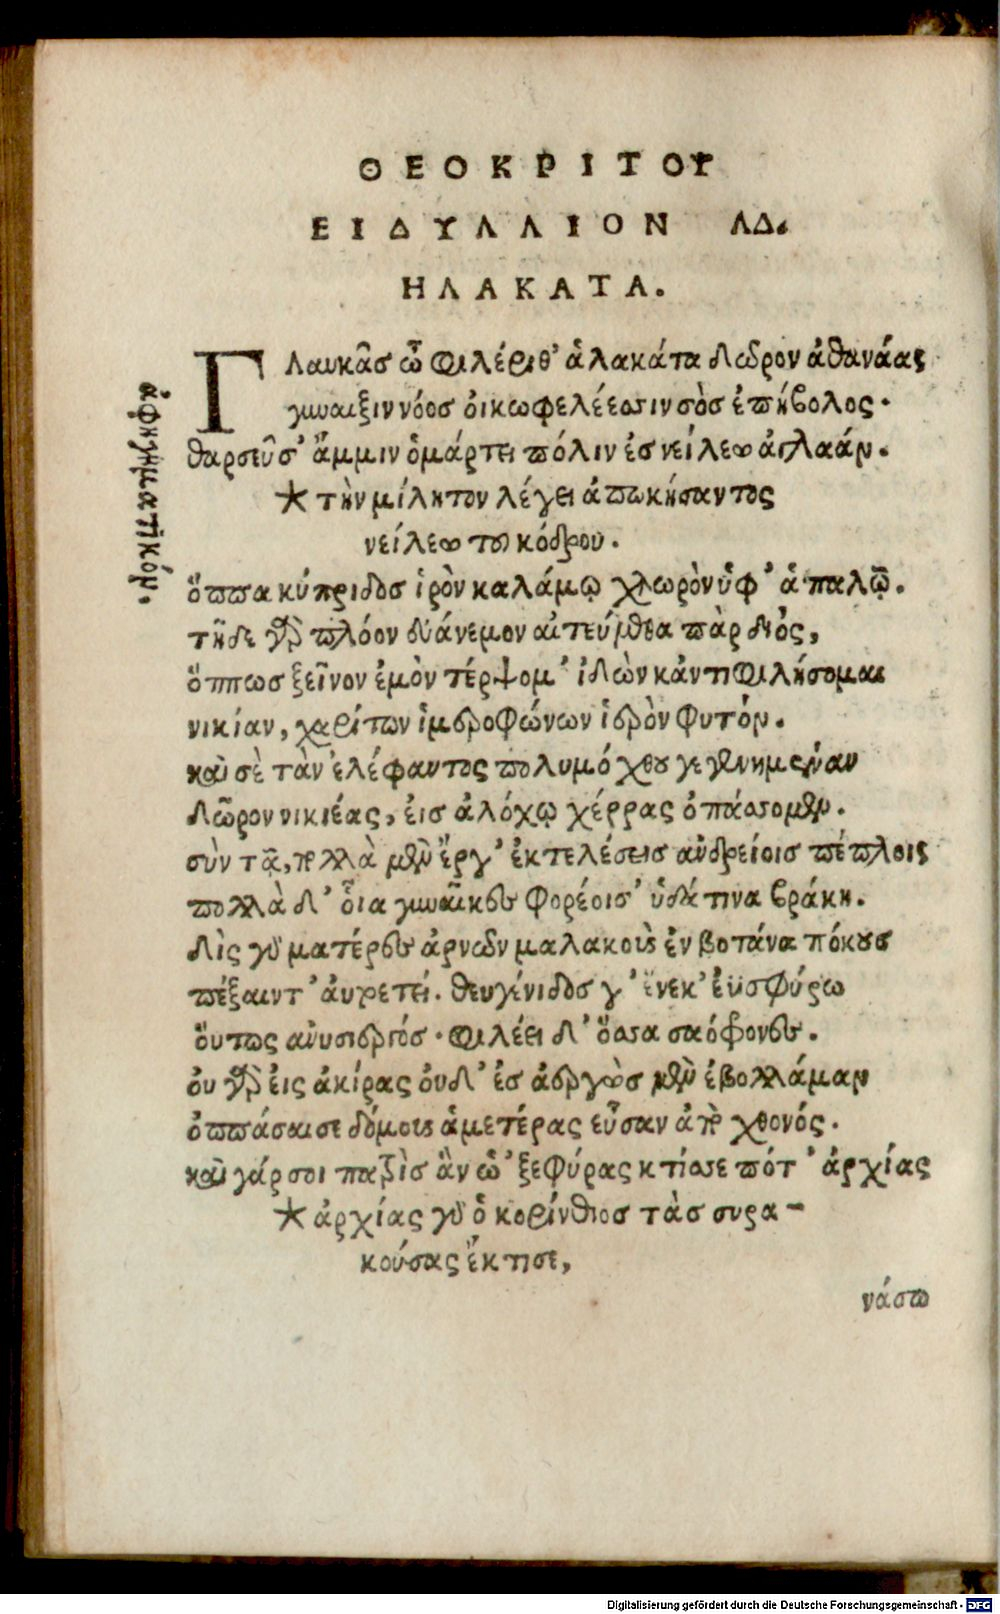 ΘΕΟΚΡΙΤΟΥ
ΕΙΔΥΛΛΙΟΝ ΛΔ.
ΗΛΑΚΑΤΑ.
Γλαυκᾶς ὦ φιλέριθ' ἀλακάτα δῶρον ἀθανάας
γυναιξὶν νόος οἰκωφελέεσσιν σὸς ἐπήβολος·
θαρσεῦσ' ἄμμιν ὁμάρτει πόλιν ἐς νείλεω ἀγλαάν.
* τὴν μίλητον λέγει ἀποικήσαντος
νείλεω τοῦ κόδρου.
ὅππα κύπριδος ἱρὸν καλάμῳ χλωρὸν ὑφ' ἁπαλῷ.
τῇδε γὰρ πλόον εὐάνεμον αἰτεύμεθα πὰρ διός,
ὅππως ξεῖνον ἐμὸν τέρψομ' ἰδὼν κἀντιφιλήσομαι
νικίαν, χαρίτων ἱμεροφώνων ἱερὸν φυτόν.
καὶ σὲ τὰν ἐλέφαντος πολυμόχθου γεγενημέναν
δῶρον νικιέας, εἰς ἀλόχῳ χέρρας ὀπάσσομεν.
σὺν τᾷ, πολλὰ μὲν ἔργ' ἐκτελέσεις ἀνδρείοις πέπλοις
πολλὰ δ' οἷα γυναῖκες φορέοισ' ὑδάτινα βράκη.
δὶς γὰρ ματέρες ἀρνῶν μαλακοὺς ἐν βοτάνα πόκους
πέξαιντ' αὐρετεί. θευγένιδος γ' ἕνεκ' ἐϋσφύρω
οὕτως ἀνυσιεργός· φιλέει δ' ὅσσα σαόφρονες.
οὐ γὰρ εἰς ἀκίρας οὐδ' ἐς ἀεργὼς κεν ἐβολλάμαν
ὀππάσαι σε δόμους ἁμετέρας εὖσαν ἀπὸ χθονός.
καὶ γάρ σοι πατρὶς ἃν ὦ 'ξεφύρας κτίσσε πότ' ἀρχίας
* ἀρχίας γὰρ ὁ κορίνθιος τὰς συρα-
κούσας ἔκτισε,
νάσω
ἀφηγηματικόν.